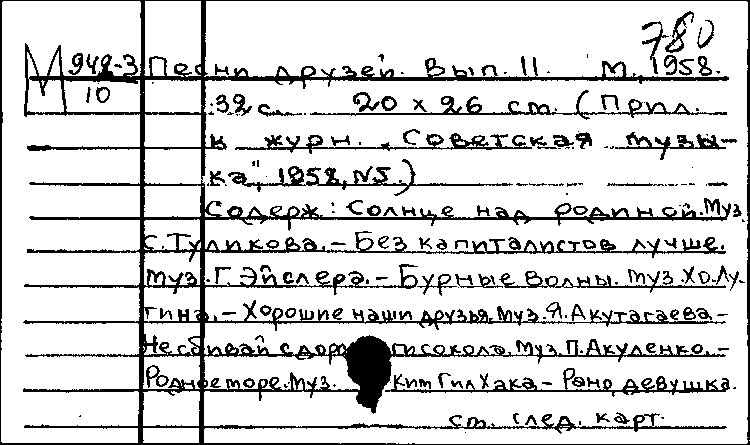 780
М 942-3 Песни друзей. Вып. 11. М., 1958.
10 32 с. 20 × 26 см. (Прил.
к журн. „Советская музы-
ка", 1958, №5.)
Содерж: Солнце над родиной. Муз.
С. Туликова. – Без капиталистов лучше.
Муз. Г. Эйслера. – Бурные волны. Муз. Хо. Лу-
тина. – Хорошие наши друзья. Муз. Я. Акутагаева –
Не сбивай с дороги сокола. Муз. П. Акуленко. –
Родное море. Муз. Ким Гил Хака – Рано, девушка.
см. след. карт.